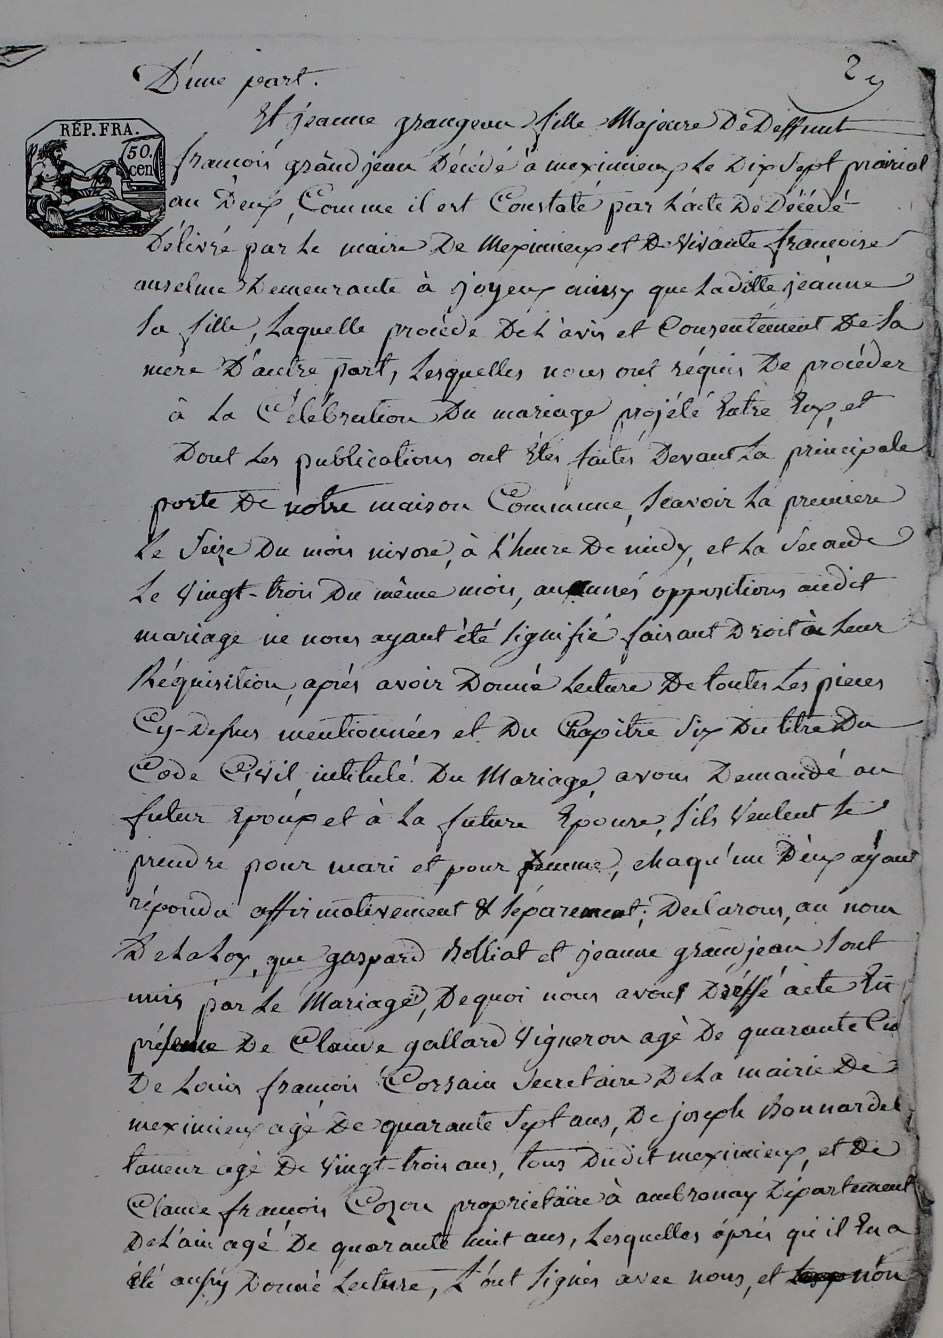 D'une part.
2
Et jeanne grangean fille Majeure De Deffunt
RÉP. FRA.
50.
cen
francois grandjean Décédé à meximieux Le Dix Sept prairial
an Deux, Comme il est Constaté par L'acte De Décédé
Délivré par Le maire De Meximieux et De Vivante francoise
anselme Demeurante à joyeux ainsy que Laditte jeanne
Sa fille, Laquelle procède De L'avis et Consentement De Sa
mère D'autre part, Lesquelles nous ont réquis De procéder
à La Célébration Du mariage projété Entre Eux, et
Dont Les publications ont Etés faités Devant La principale
porte De notre maison Commune, Scavoir La premiere
Le Seize Du mois nivose, à L'heure De midy, et La Seconde
Le Vingt-trois Du même mois, aucunnés oppositions audit
mariage ne nous ayant été Signifié faisant Droit à Leur
Réquisition, aprés avoir Donné Lecture De toutes Les pieces
Cy-Dessus mentionnées et Du Chapitre Six Du titre Du
Code Civil intitulé Du Mariage, avons Demandé au
futur Epoux et à La future Epouse, S'ils Veulent Se
prendre pour mari et pour femme, chaqu'un D'eux ayant
répondu affirmativement & Séparement; Declarons, au nom
De La Loy, que gaspard Rolliat et jeanne grandjean Sont
unis par Le Mariage, De quoi nous avons Dréssé acte En
présence De Claude gallard Vigneron agé De quarante
De Louis francois Corsain Secretaire De La mairie De
meximieux agé De quarante Sept ans, De joseph Bonnardel
taneur agé De Vingt-trois ans, tous Dudit meximieux, et De
Claude francois Cozon propriétaire à ambronay Département
De L'ain agé De quarante huit ans, Lesquelles après qu'il En a
été aussy Donné Lecture, L'ont Signés avec nous, et non